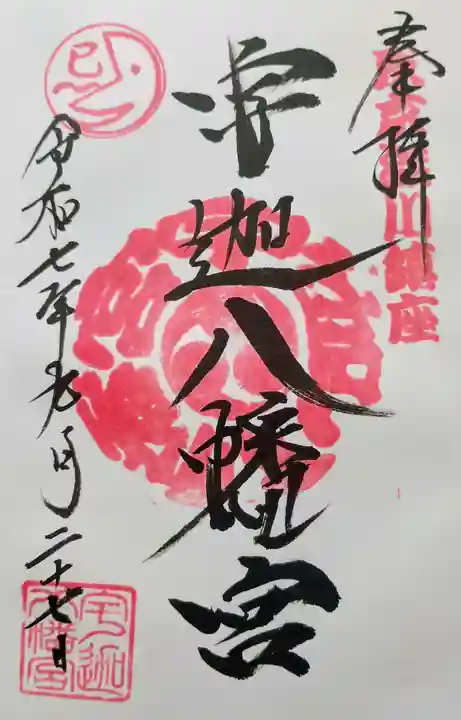 奉拝
川鎮座
宇迦八幡宮
巳
令和七年九月二十七日
宇迦八幡宮